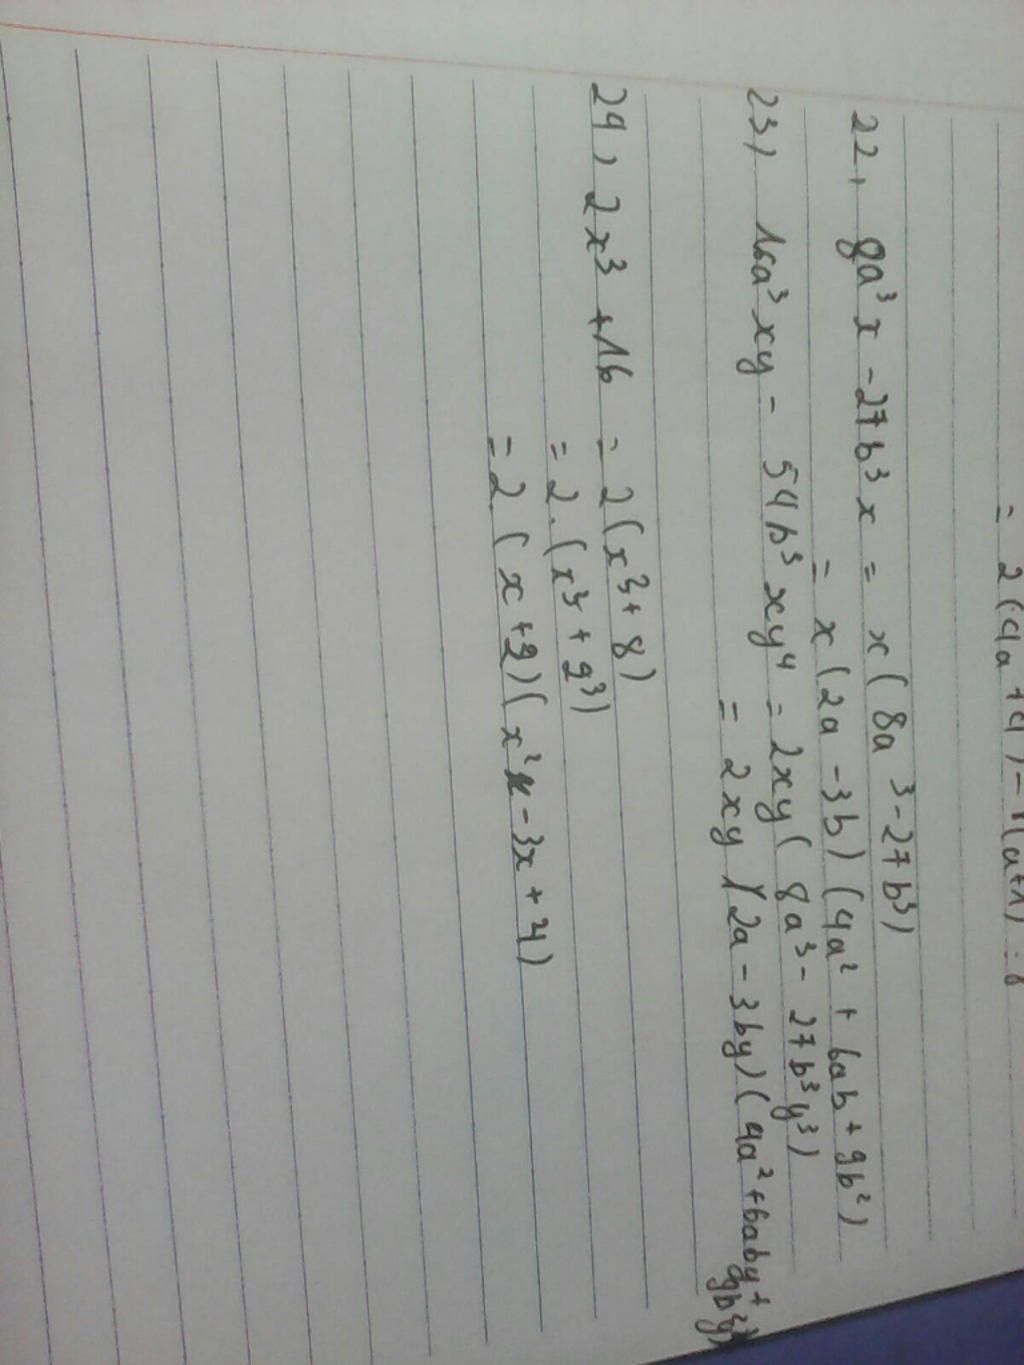 = 2(4a + 4) -
22, 8a³x - 27b³x = x(8a³ - 27b³)
= x(2a - 3b)(4a² + 6ab + 9b²)
23) 16a³xy - 54b³xy⁴ = 2xy(8a³ - 27b³y³)
= 2xy (2a - 3by)(4a² + 6aby +
9b²y²)
24, 2x³ + 16 = 2(x³ + 8)
= 2.(x³ + 2³)
= 2.(x + 2)(x² - 3x + 4)